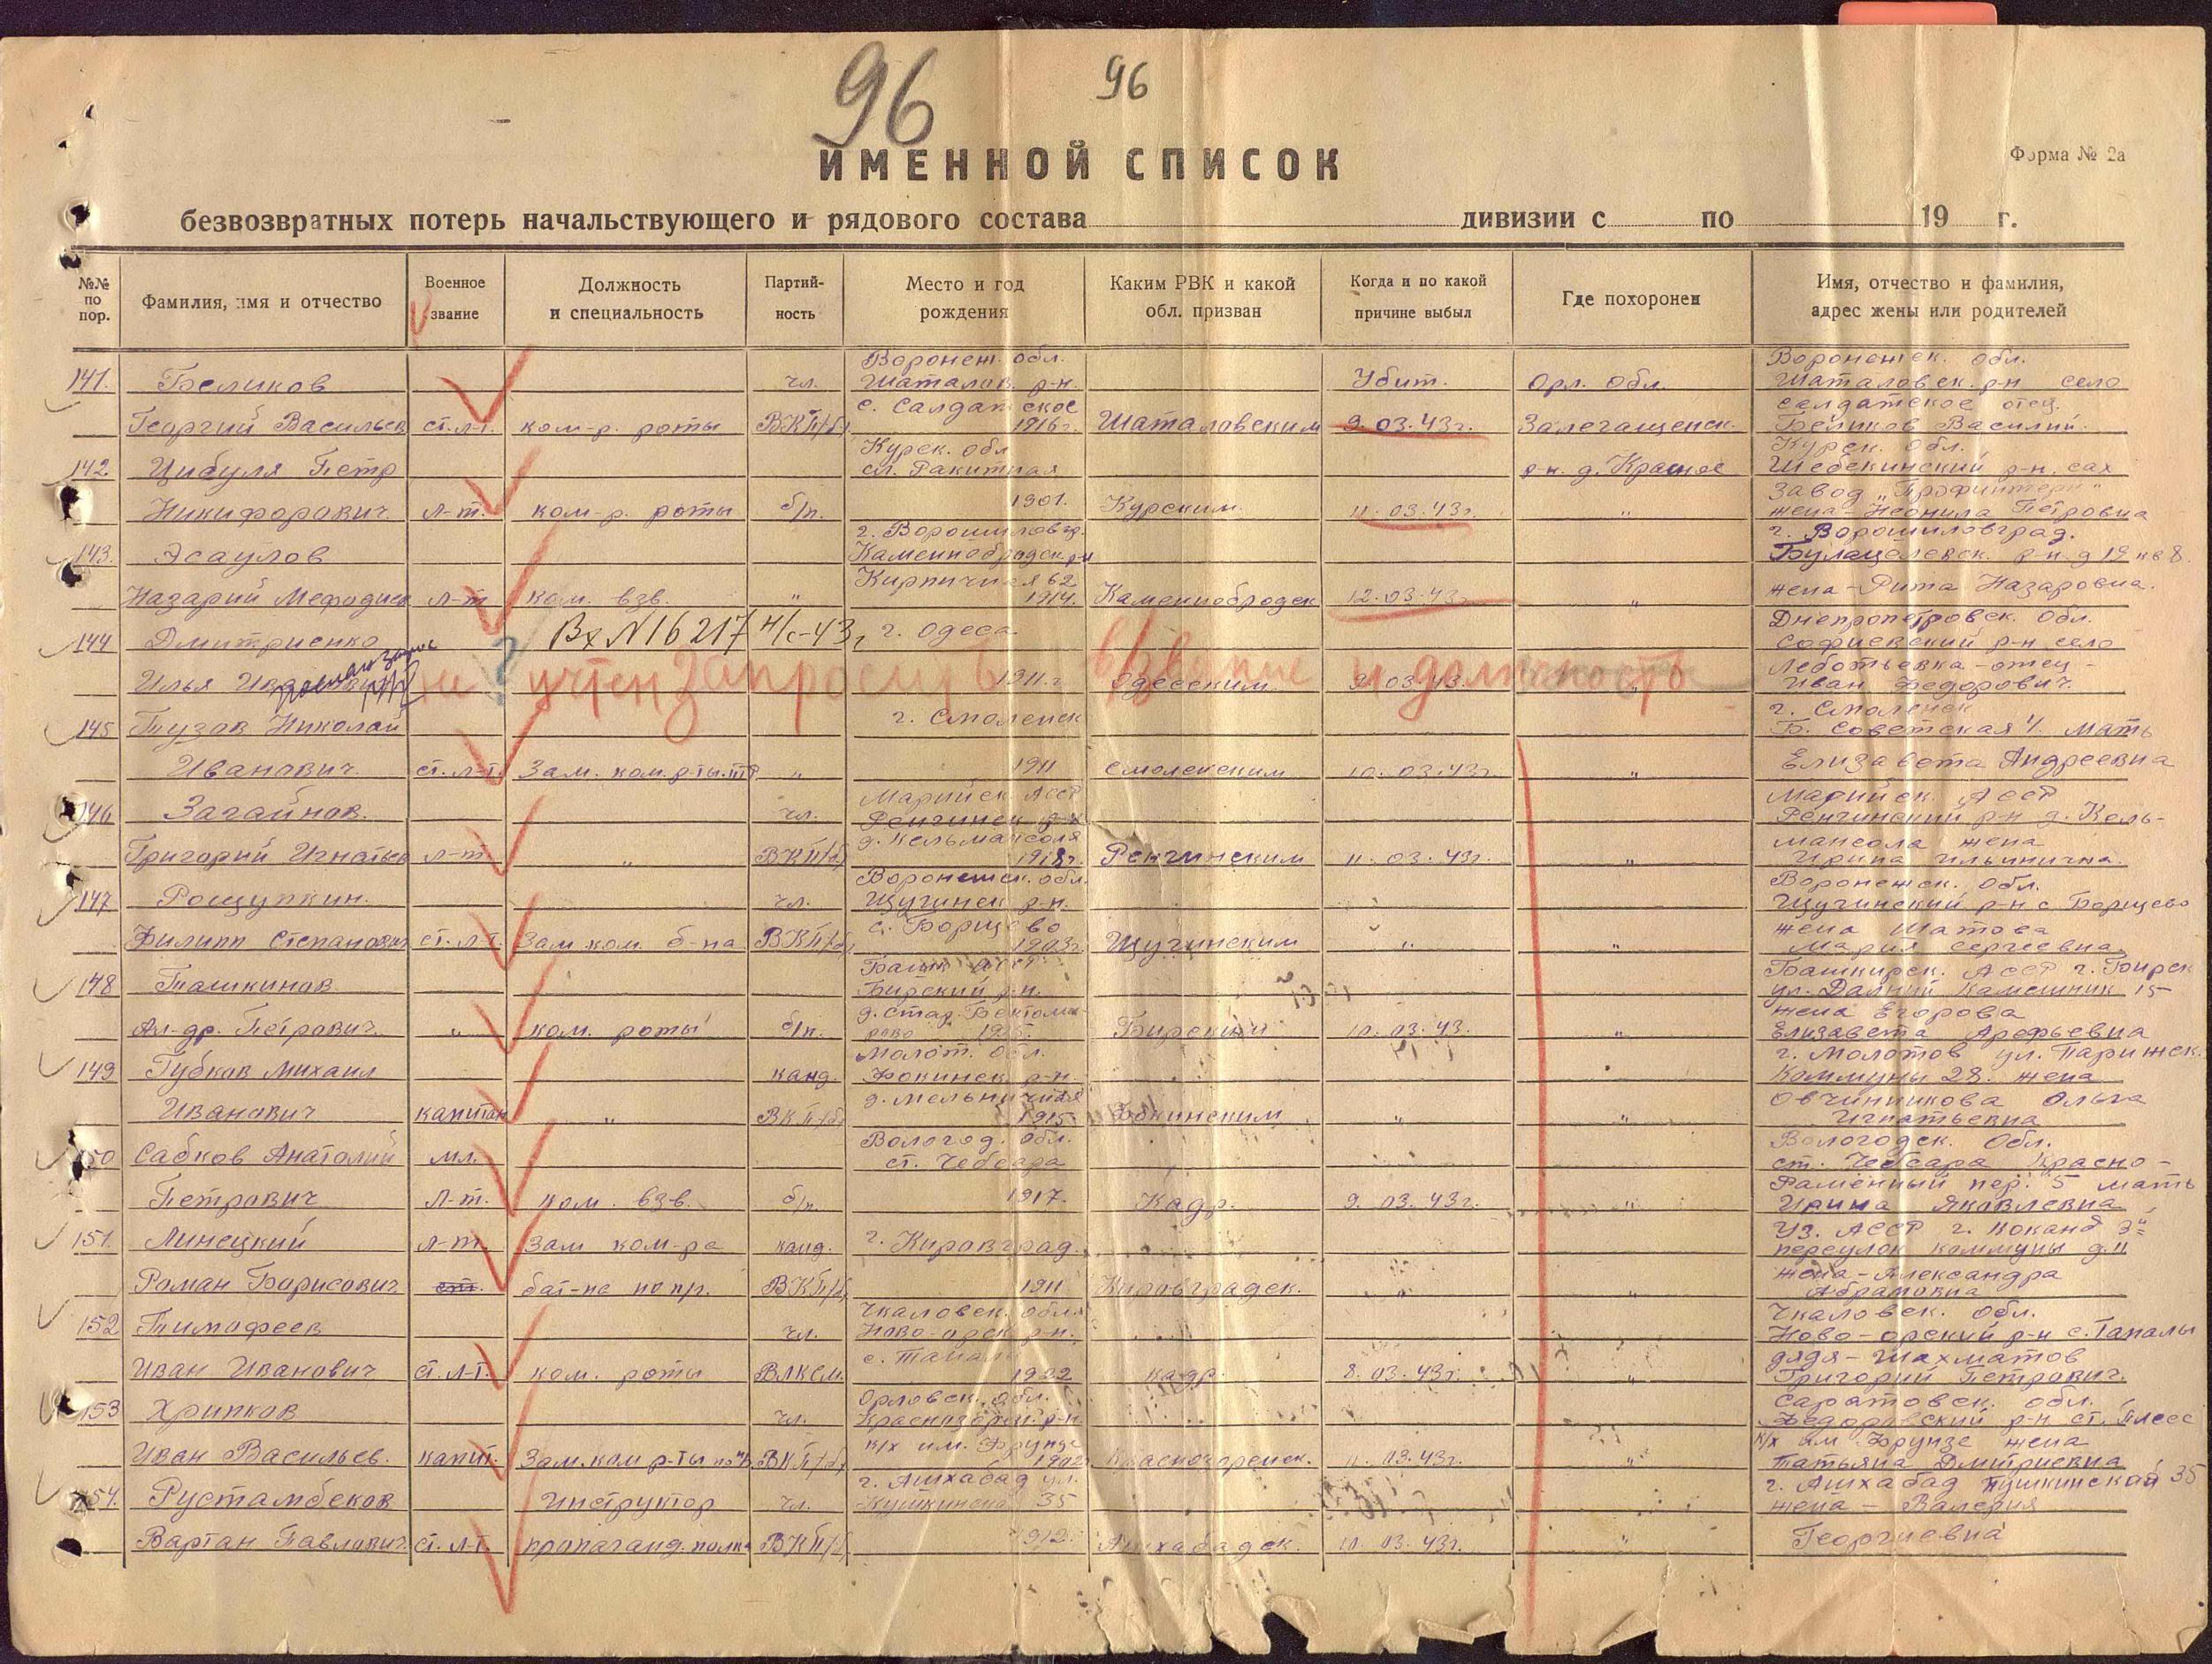 96
96
ИМЕННОЙ СПИСОК
Форма № 2а
безвозвратных потерь начальствующего и рядового состава дивизии с по 19 г.
№№ по пор.
Фамилия, имя и отчество
Военное звание
Должность и специальность
Партий-ность
Место и год рождения
Каким РВК и какой обл. призван
Когда и по какой причине выбыл
Где похоронен
Имя, отчество и фамилия, адрес жены или родителей
141. Беликов Георгий Васильев ст. л-т. ком-р. роты чл. ВКП/б/ Воронеж. обл. Шаталов. р-н. с. Салдатское 1916 г. Шаталовским Убит. 9.03.43г. Орл. обл. Залегащенск. Воронежск. обл. Шаталовск. р-н село Салдатское отец. Беликов Василий.
142. Цибуля Петр Никифорович. л-т. ком-р. роты б/п. Курск. обл. сл. Ракитная 1901. Курским. 11.03.43г. р-н. д. Красное " Курск. обл. Шебекинский р-н. сах завод „Профинтерн" жена - Неонила Петровна
143. Эсаулов Назарий Мефодиев л-т ком. взв. " г. Ворошиловгр. Каменнобродск р-н Кирпичная 62 1914. Каменнобродск 12.03.43г. " г. Ворошиловград. р-н. д 19 кв 8. жена - Рита Назаровна.
Вх N 16217 н/с-43г
144 Дмитриенко Илья г. Одеса 1911 г. Одесским 9.03.43. " Днепропетровск. обл. Софиевский р-н село отец - Иван Федорович.
не учтен запросить звание и должность
145 Тузов Николай Иванович. ст. л-т. Зам. ком. р-ты. " г. Смоленск 1911 Смоленским 10.03.43г. " г. Смоленск Б. Советская мать Елизавета Андреевна
146 Загайнов. Григорий Игнатьев л-т " чл. ВКП/б/ Марийск. АССР д. Кельмаксола 1918г. Ренгинским 11.03.43г. " Марийск. АССР Ренгинский р-н д. Кельмаксола жена Ирина Ильинична.
147 Рощупкин. Филипп Степанович ст. л-т. Зам. ком. б-на чл. ВКП/б/ Воронежск. обл. Щучинск р-н. с. Борщево 1903г. Щучинским " " Воронежск. обл. Щучинский р-н с Борщево жена Шатова Мария Сергеевна.
148 Ташкинов Ал-др. Петрович. " ком. роты б/п. Башк. АССР Бирский р-н. Бирским 10.03.43. " Башкирск. АССР г. Бирск ул. Дальний Камешник 15 жена Егорова Елизавета Арефьевна
149 Губков Михаил Иванович капитан " канд. ВКП/б/ Молот. обл. Фокинск. р-н. 1915. Фокинским " " г. Молотов ул. Парижск. Коммуны 28. жена Овчинникова Ольга Игнатьевна
150 Сабков Анатолий Петрович мл. л-т. ком. взв. б/п. Вологод. обл. ст. Чебсара 1917. Кадр. 9.03.43г. Вологодск. обл. ст. Чебсара Красно-раменный пер. 5 мать Ирина Яковлевна
151. Линецкий Роман Борисович л-т Зам ком-ра бат-на по пр. канд. ВКП/б/ г. Кировград. 1911 Кировградск. " " Уз. АССР г. Коканд 3й переулок коммуны д. 11 жена - Александра Абрамовна
152 Тимофеев Иван Иванович ст. л-т. ком. роты чл. ВЛКСМ. Чкаловск. обл. Ново-орск р-н. 1922 кадр. 8.03.43г. " Чкаловск. обл. Ново-орский р-н дядя - Шахматов Григорий Петрович.
153 Хрипков Иван Васильев. капит. Зам. ком р-ты чл. ВКП/б/ Орловск. обл. Краснозорен. р-н к/х им. Фрунзе 1902 Краснозоренск. 11.03.43г. " Саратовск. обл. Федоровский р-н ст. Плесс к/х им Фрунзе жена Татьяна Дмитриевна
154. Рустамбеков Вартан Павлович. ст. л-т. Инструктор пропаганд. полка чл. ВКП/б/ г. Ашхабад ул. 35 1912. Ашхабадск. 10.03.43г. " г. Ашхабад Пушкинская 35 жена - Валерия Георгиевна